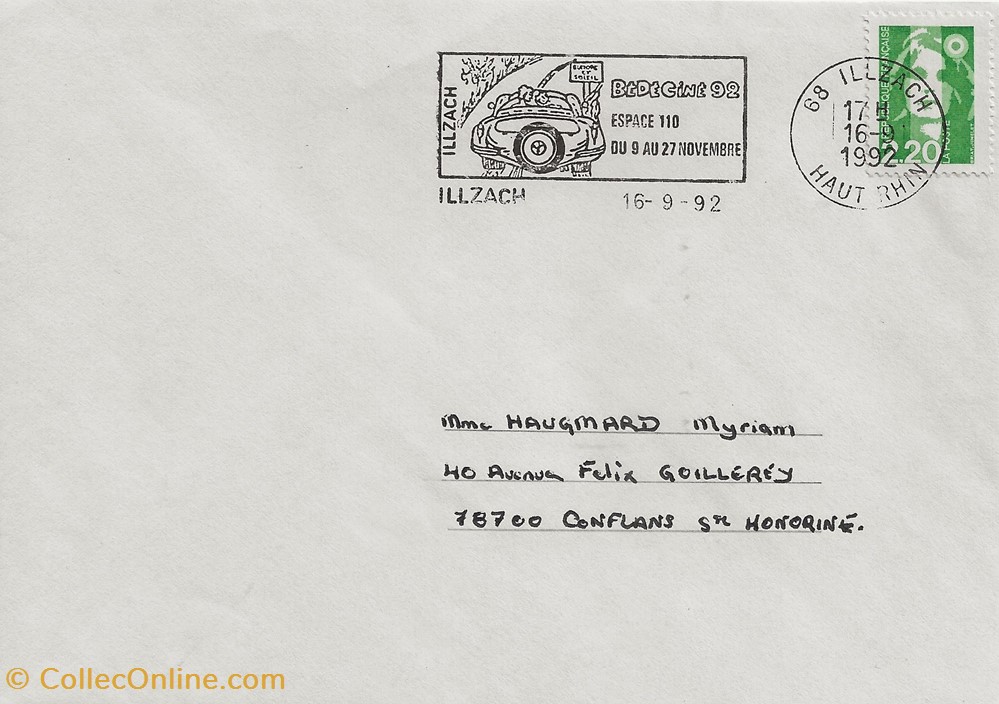 ILLZACH
EUROPE
ET
SOLEIL
BéDéCiné 92
ESPACE 110
DU 9 AU 27 NOVEMBRE
ILLZACH
16-9-92
68 ILLZACH
17 H
16-9
1992
HAUT RHIN
REPUBLIQUE FRANÇAISE
2.20
LA POSTE
Mme HAUGMARD Myriam
40 Avenue Felix GOILLEREY
78700 CONFLANS Ste HONORINE.
© CollecOnline.com